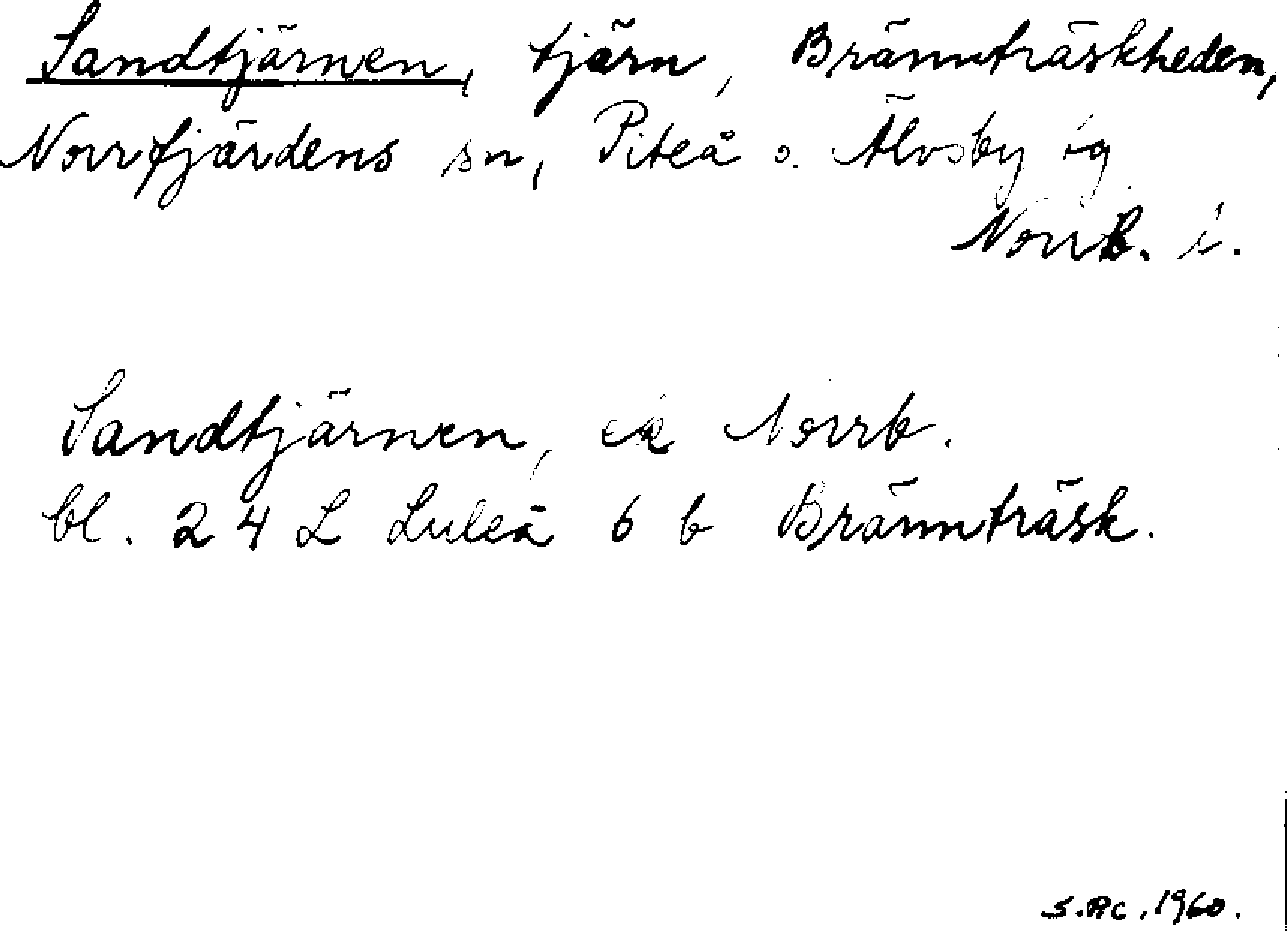 Sandtjärnen, tjärn, Brännträskheden,
Norrfjärdens sn, Piteå o. Älvsby tg
Norrb. l.
Sandtjärnen, ek Norrb.
bl. 24 L Luleå 6 b Brännträsk.
1960.